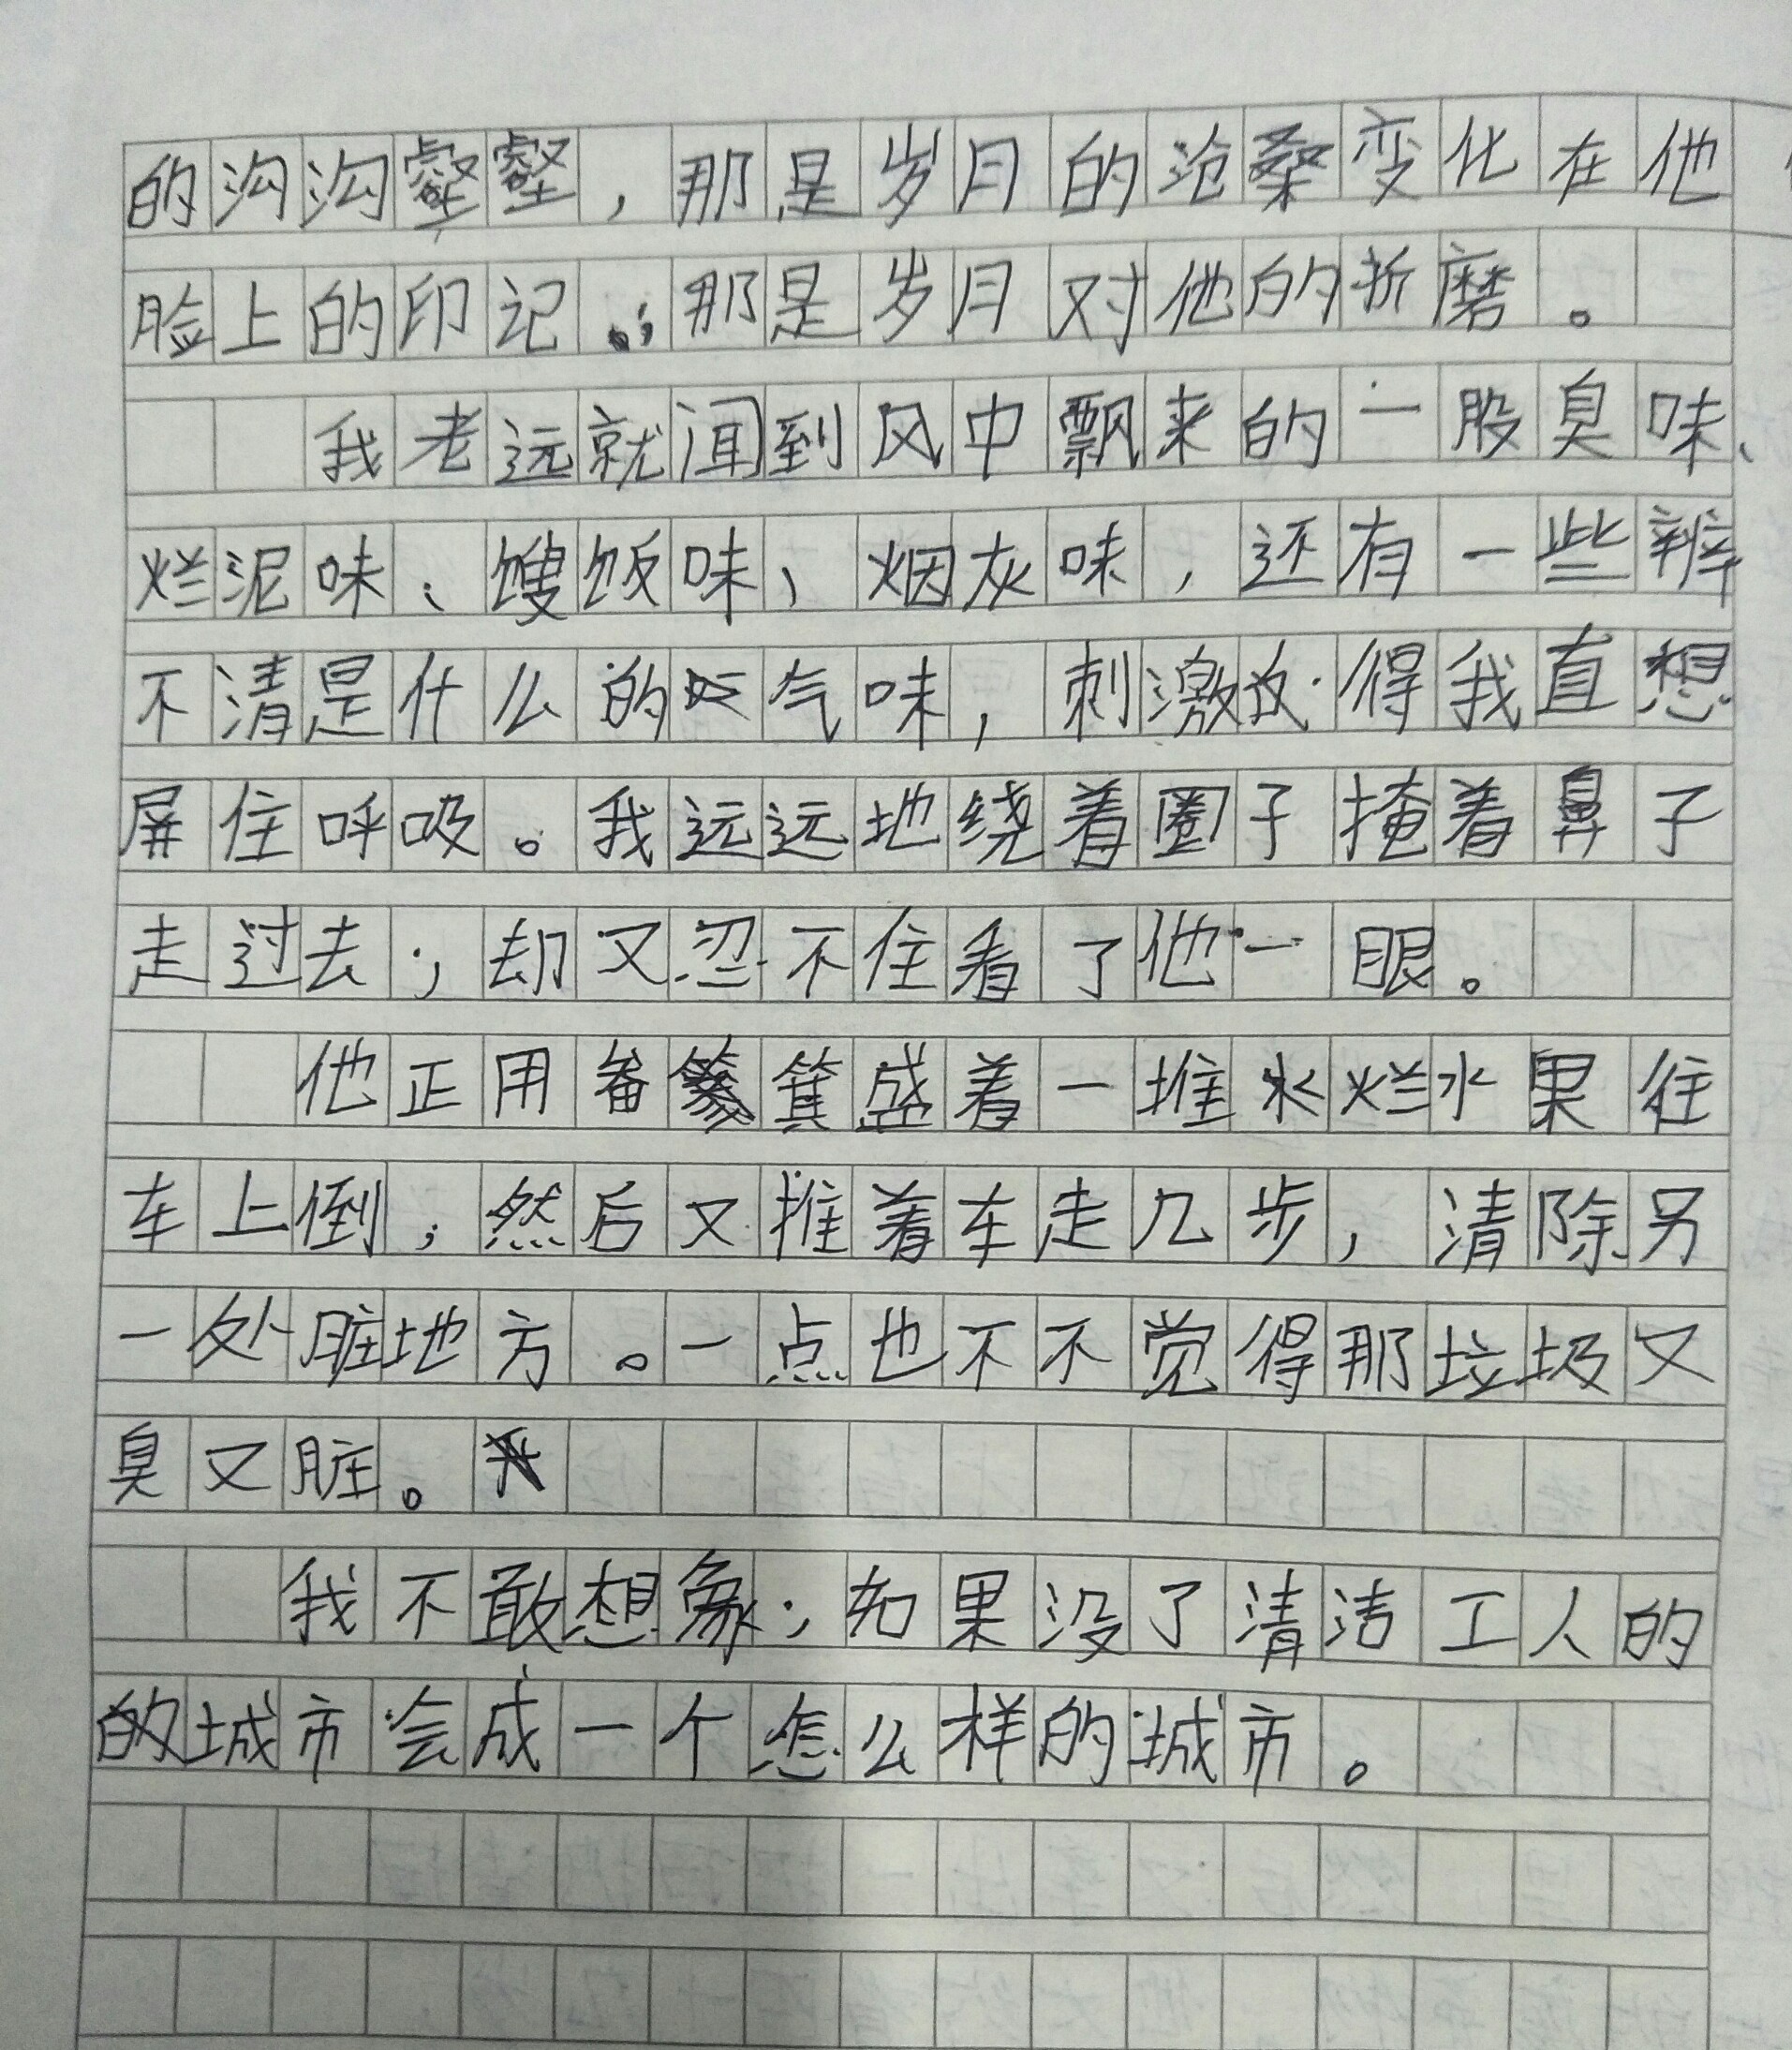 的沟沟壑壑，那是岁月的沧桑变化在他
脸上的印记，那是岁月对他的折磨。
我老远就闻到风中飘来的一股臭味、
烂泥味、馊饭味、烟灰味，还有一些辨
不清是什么的气味，刺激得我直想
屏住呼吸。我远远地绕着圈子掩着鼻子
走过去，却又忍不住看了他一眼。
他正用畚箕盛着一堆烂水果往
车上倒，然后又推着车走几步，清除另
一处脏地方。一点也不不觉得那垃圾又
臭又脏。
我不敢想象，如果没了清洁工人的
的城市会成一个怎么样的城市。